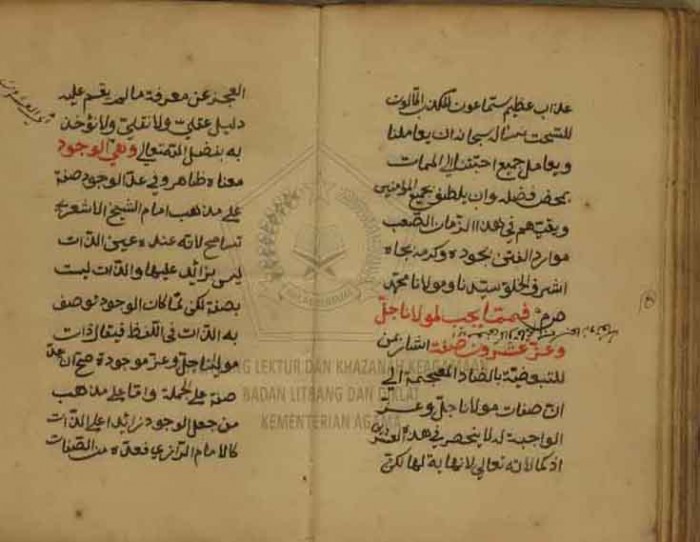 عذاب عظيم سماعون للكذب اكالون
للسحت نسال سبحانه ان يعاملنا
ويعامل جميع احبتنا الى الممات
بمحض فضله وان يلطف بجميع المؤمنين
ويقيهم في هذا الزمان الصعب
موارد الفتن بجوده وكرمه بجاه
اشرف الخلق سيدنا ومولانا محمد
صم فمما يجب لمولانا جل
وعز عشرون صفة اشار بمن
للتبعيضية الى
ان صفات مولانا جل وعز
الواجبة له لا ينحصر في هذه العشرين
اذ كمالاته تعالى لا نهاية لها لكن
العجز عن معرفة ما لم يقم عليه
دليل عقلي ولا نقلي ولا نؤخذ
به بفضل الله تعالى وهي الوجود
معناه ظاهر وفي عد الوجود صفة
على مذهب امام الشيخ الاشعري
تسامح لانه عنده عين الذات
ليس بزائد عليها والذات ليست
بصفة لكن لما كان الوجود توصف
به الذات في اللفظ فيقال ذات
مولانا جل وعز موجودة صح ان عد
صفة على الجملة واما على مذهب
من جعل الوجود زائدا على الذات
كالامام الرازي فعده من الصفات
LEKTUR DAN KHAZANAH KEAGAMAAN
BADAN LITBANG DAN DIKLAT
KEMENTERIAN AGAMA